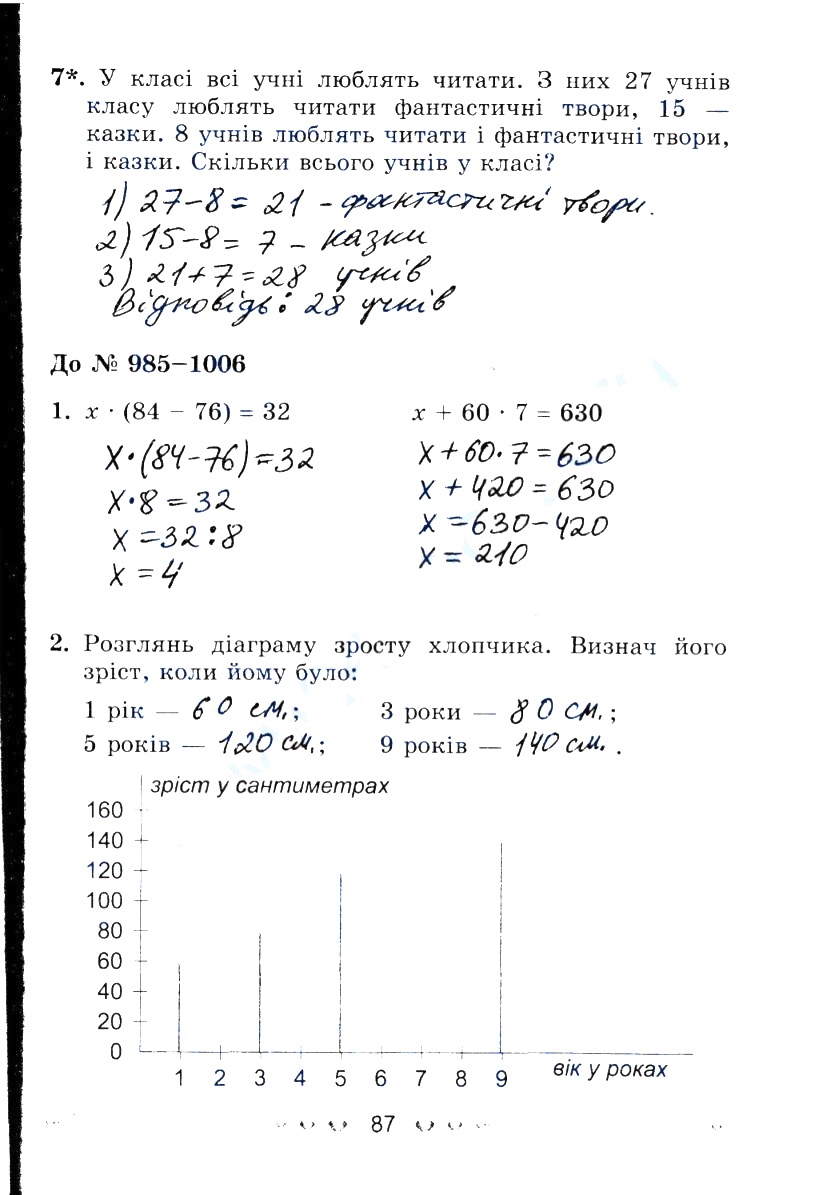 7*. У класі всі учні люблять читати. З них 27 учнів
класу люблять читати фантастичні твори, 15 —
казки. 8 учнів люблять читати і фантастичні твори,
і казки. Скільки всього учнів у класі?
1) 27-8= 21 - фантастичні твори.
2) 15-8= 7 - казки
3) 21+7=28 учнів
Відповідь: 28 учнів
До № 985–1006
1. x · (84 – 76) = 32 x + 60 · 7 = 630
x·(84-76)=32 x+60·7=630
x·8=32 x+420=630
x=32:8 x=630-420
x=4 x=210
2. Розглянь діаграму зросту хлопчика. Визнач його
зріст, коли йому було:
1 рік — 60 см.; 3 роки — 80 см.;
5 років — 120 см.; 9 років — 140 см. .
зріст у сантиметрах
160
140
120
100
80
60
40
20
0
1 2 3 4 5 6 7 8 9 вік у роках
87